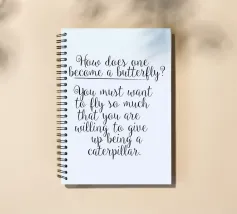 How does one
become a butterfly?
You must want
to fly so much
that you are
willing to give
up being a
caterpillar.